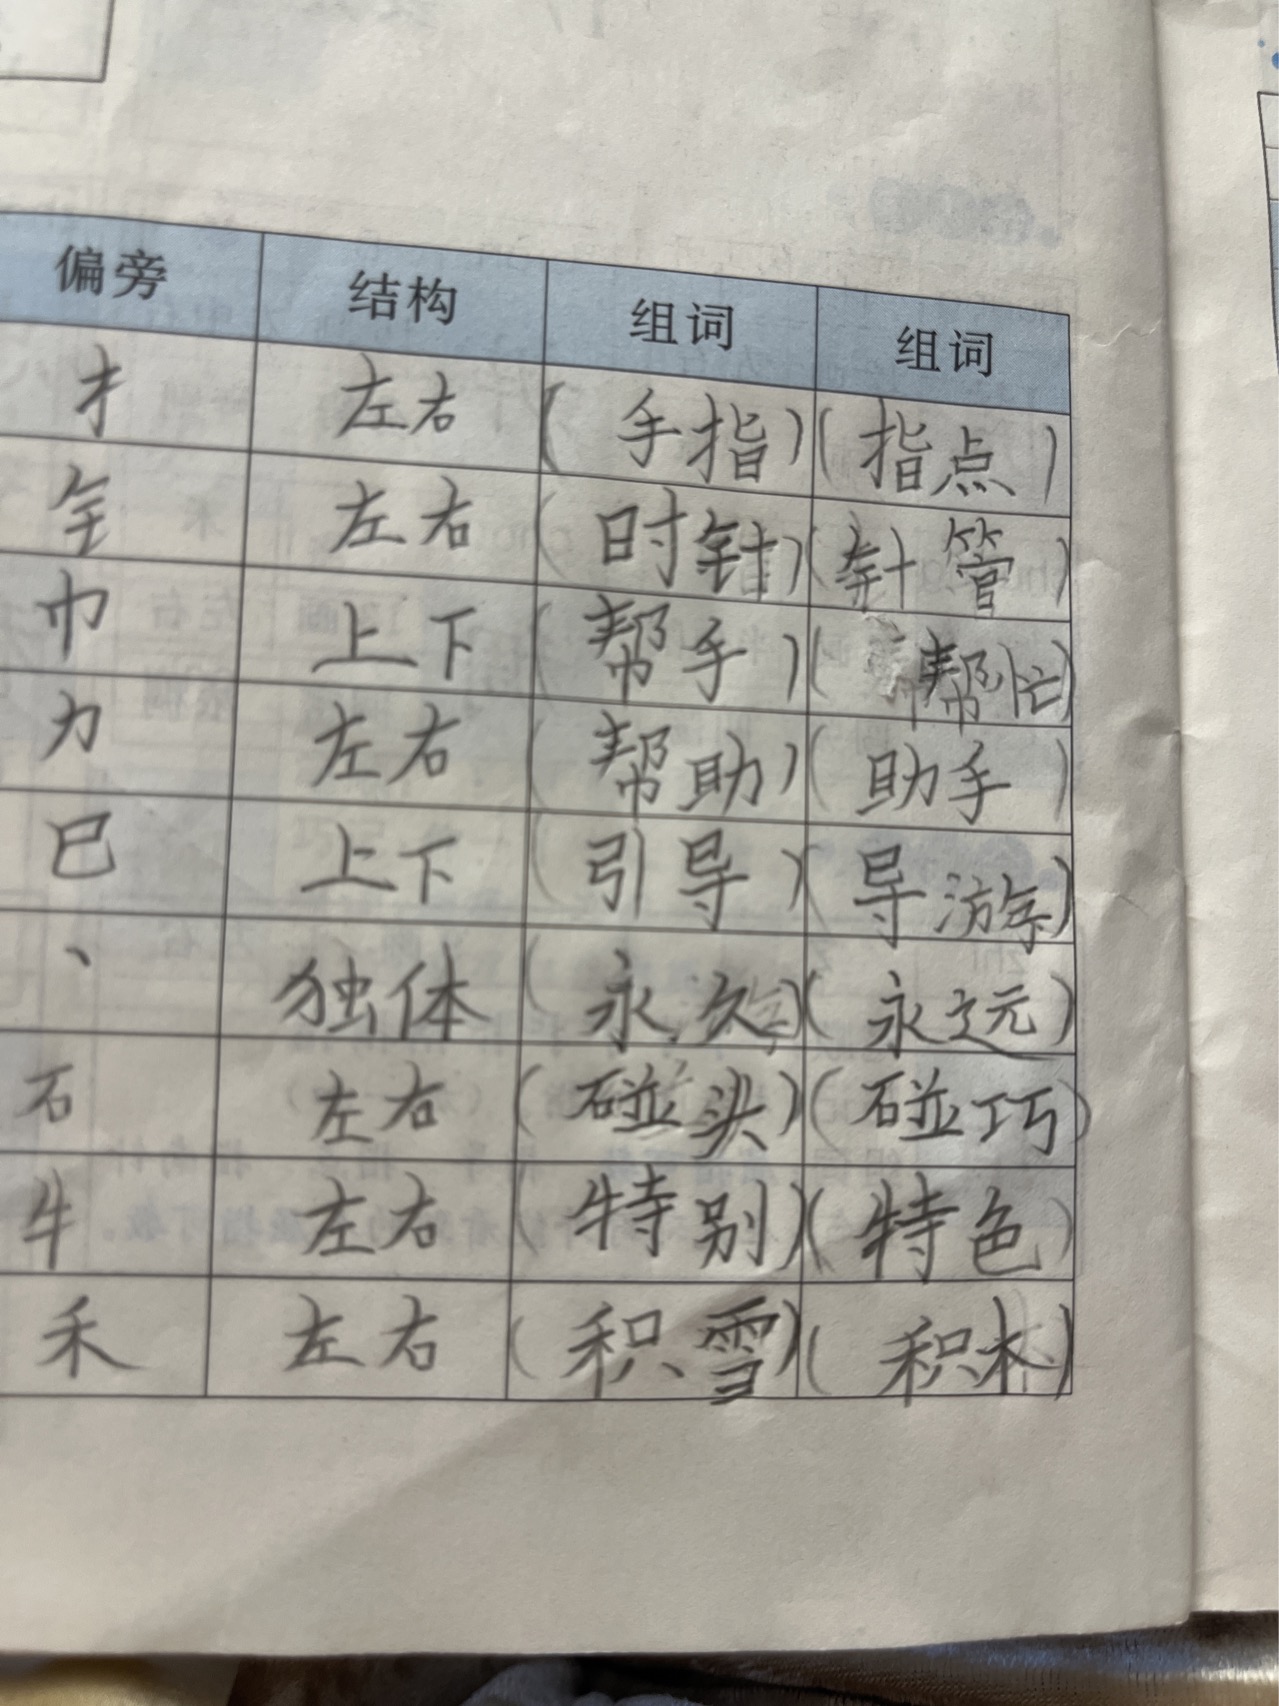 偏旁 结构 组词 组词
扌 左右 (手指) (指点)
钅 左右 (时针) (针管)
巾 上下 (帮手) (帮忙)
力 左右 (帮助) (助手)
巳 上下 (引导) (导游)
丶 独体 (永久) (永远)
石 左右 (碰头) (碰巧)
牜 左右 (特别) (特色)
禾 左右 (积雪) (积木)